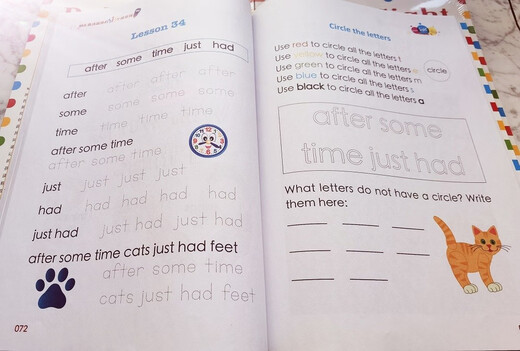 Lesson 34
after some time just had
after after after after
some some some some
time time time time
after some time
after some time
just just just just
had had had had had
just had just had just had
after some time cats just had feet
after some time
cats just had feet
072
Circle the letters
Use red to circle all the letters t
Use yellow to circle all the letters e
Use green to circle all the letters m
Use blue to circle all the letters s
Use black to circle all the letters a
circle
after some
time just had
What letters do not have a circle? Write
them here: